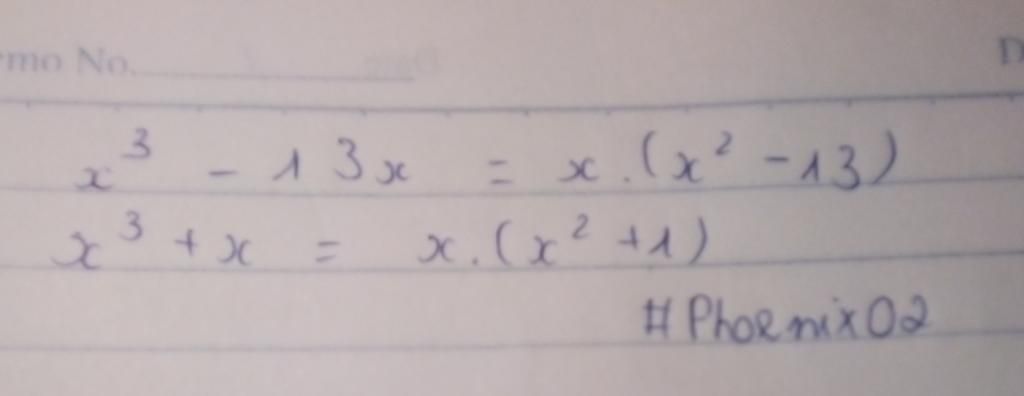 mo No.
D
x³ - 13x = x.(x² - 13)
x³ + x = x.(x² + 1)
#Phoenix02